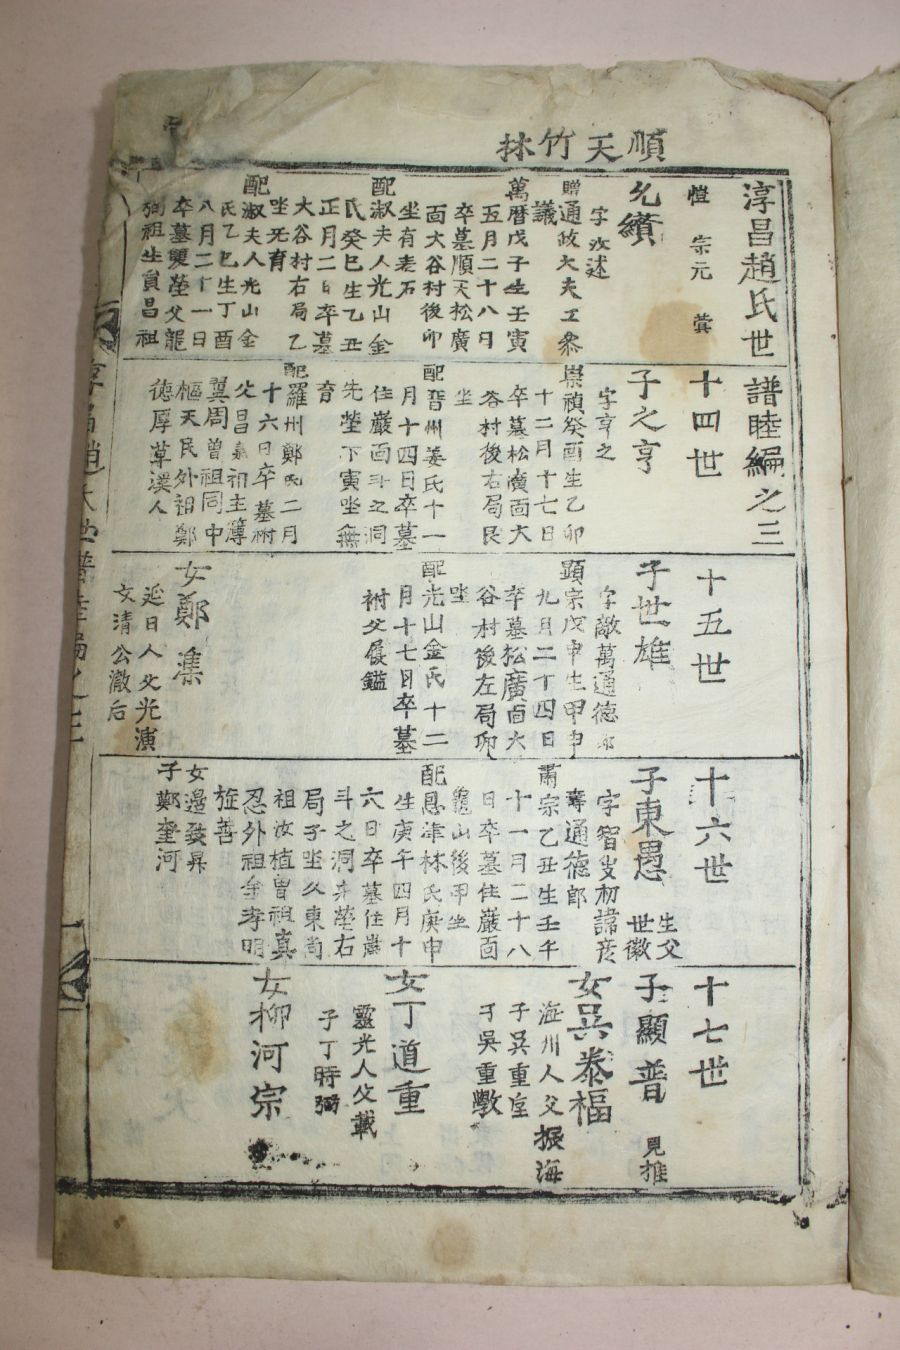 順天竹林
淳昌趙氏世譜睦編之三
愷 宗元
允纘
字汝述
贈通政大夫工參
議
萬曆戊子生壬寅
五月二十八日
卒墓順天松廣
面大谷村後卯
坐有表石
配淑夫人光山金
氏癸巳生乙丑
正月二日卒墓
大谷村右局乙
坐无育
配淑夫人光山金
氏乙巳生丁酉
八月二十一日
卒墓雙塋父龍
祖生員昌祖
十四世
子之亨
字亨之
崇禎癸酉生乙卯
十二月十七日
卒墓松廣面大
谷村後右局艮
坐
配晉州姜氏十一
月十四日卒墓
住巖面斗之洞
先塋下寅坐無
育
配羅州鄭氏二月
十六日卒墓祔
父昌 祖主簿
翼周曾祖同中
樞天民外祖鄭
德厚草溪人
十五世
子世雄
字敵萬通德郎
顯宗戊申生甲申
九月二十四日
卒墓松廣面大
谷村後左局卯
坐
配光山金氏十二
月十七日卒墓
祔父履鎰
女鄭潗
延日人父光演
文清公澈后
十六世
子東愚 生父世徽
字智叟初諱彦
壽通德郎
肅宗乙丑生壬午
十一月二十八
日卒墓住巖面
龜山後甲坐
配恩津林氏庚申
生庚午四月十
六日卒墓住巖
斗之洞先塋右
局子坐父東尚
祖汝植曾祖真
忍外祖金孝明
旌善
女邊發昇
子鄭奎河
十七世
子顯普 見推
女吳泰福
海州人父振海
子吳重
子吳重
女丁道重
靈光人父載
子丁時弼
女柳河宗